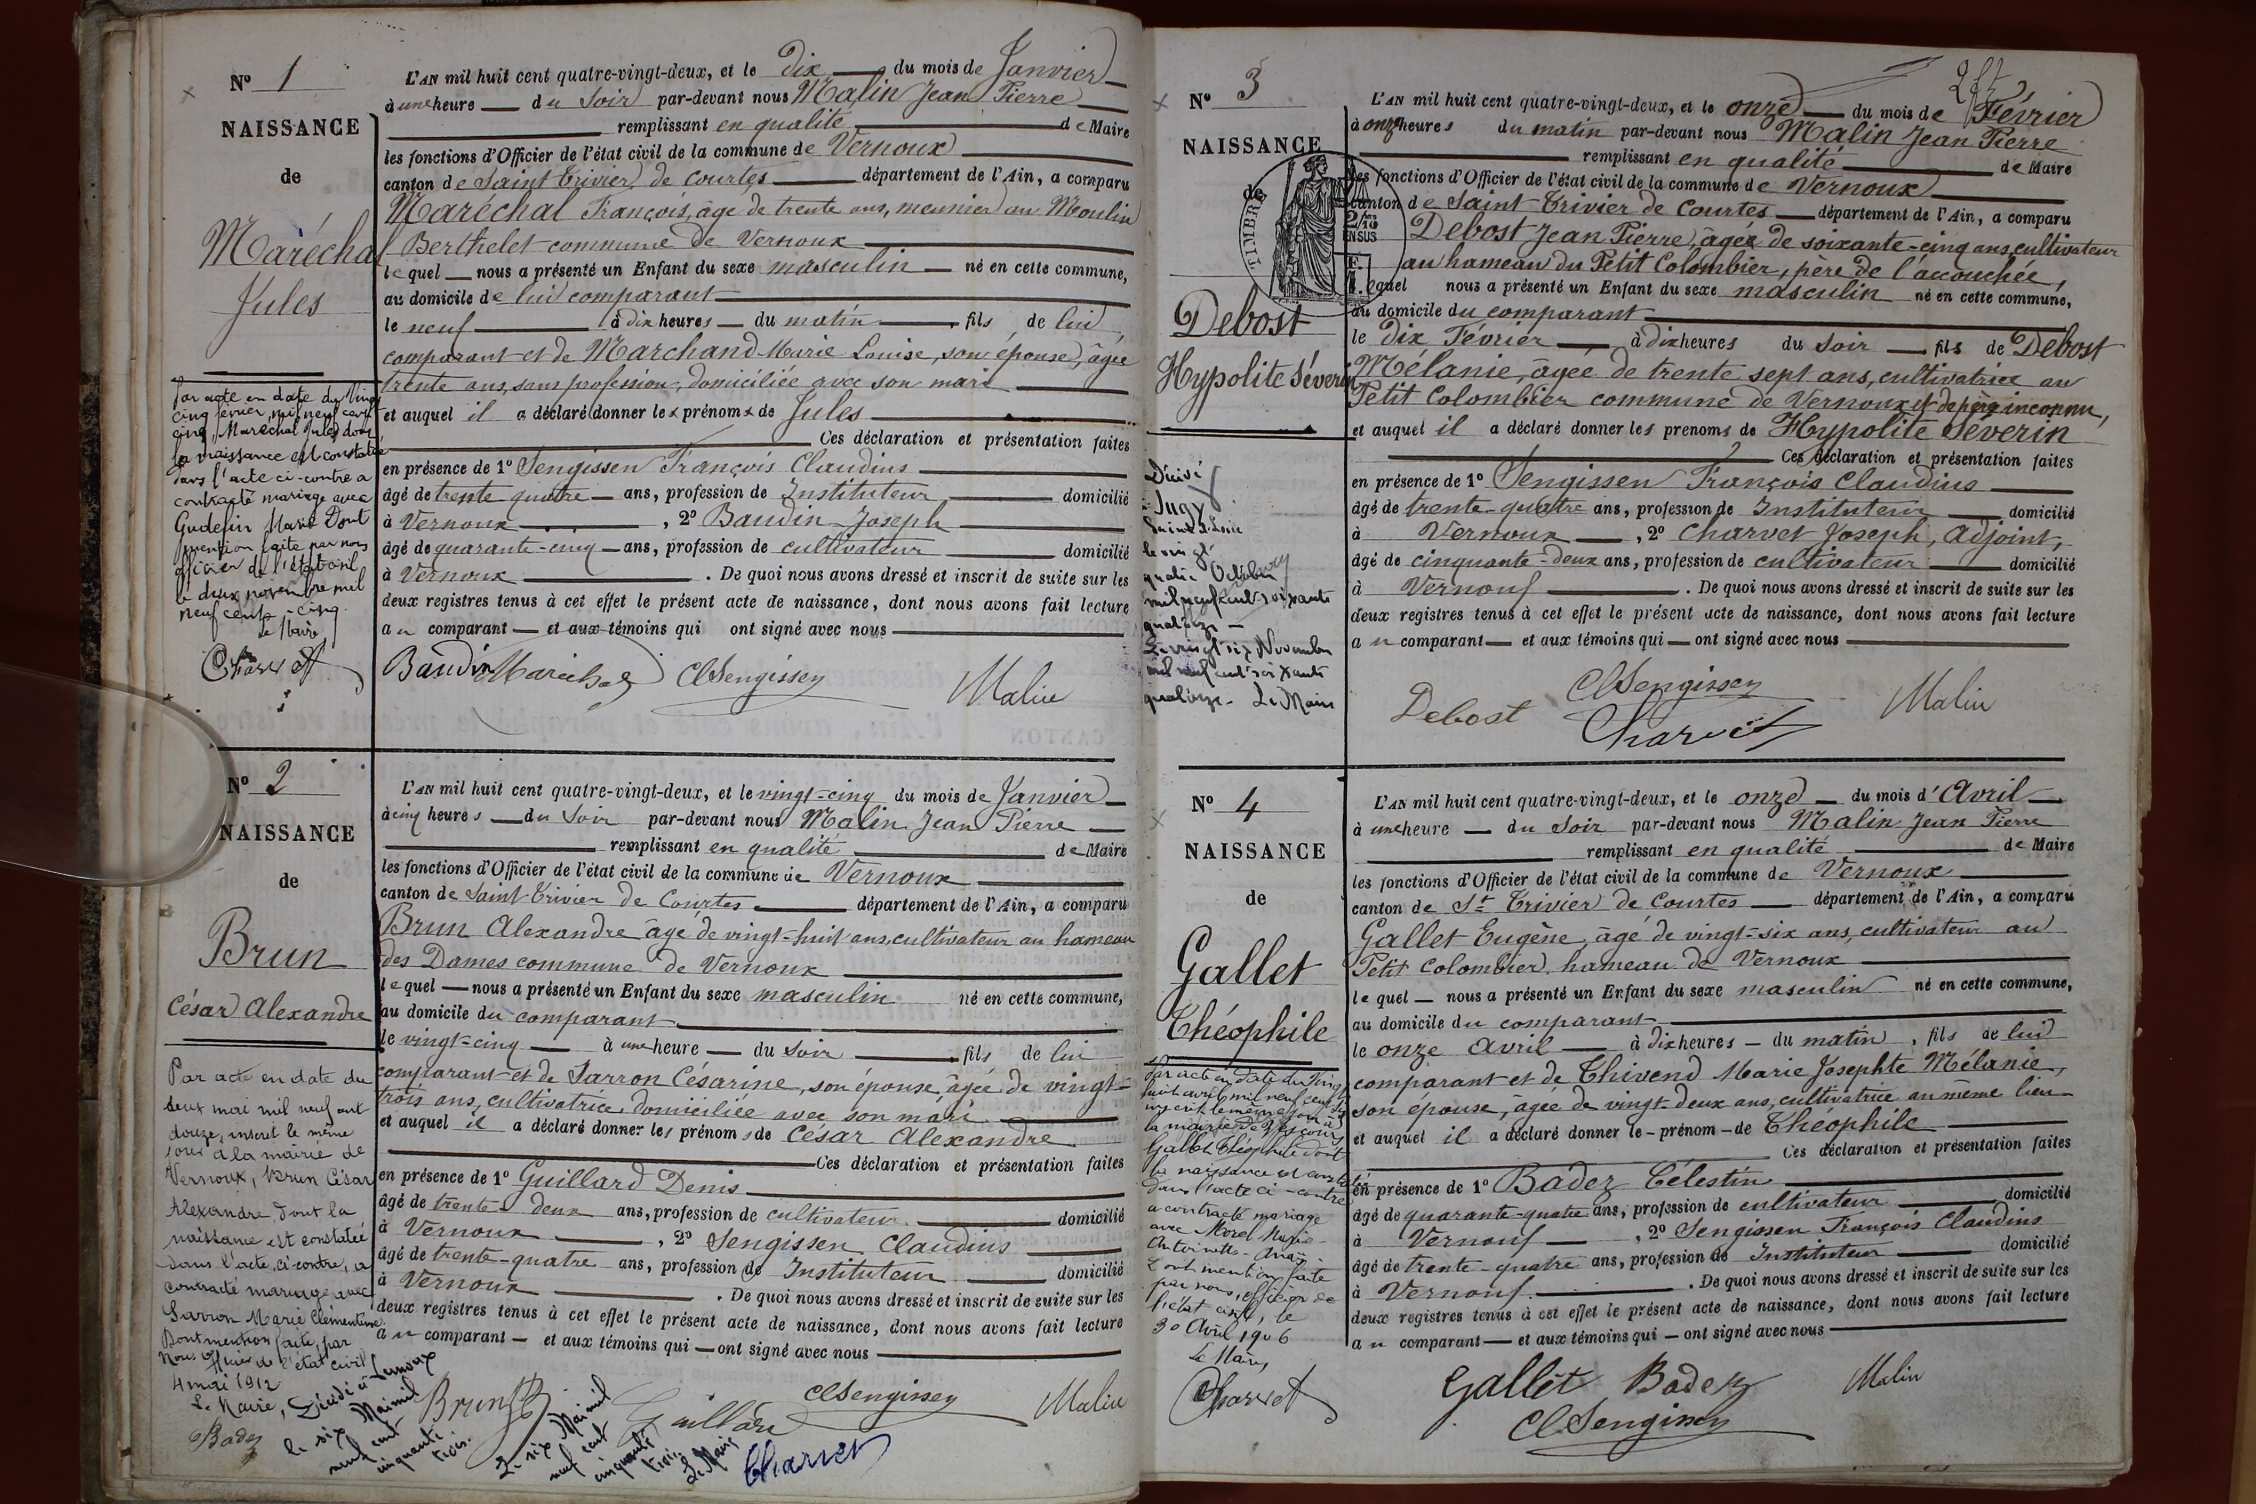 N° 1
NAISSANCE
de
Maréchal
Jules
Par acte en date du Vingt
cinq février mil neuf cent
cinq, Maréchal Jules dont
la naissance est constatée
dans l'acte ci-contre a
contracté mariage avec
Gudefin Marie Dont
mention faite par nous
officier de l'état civil
le deux novembre mil
neuf cent cinq.
Le Maire
Charvet
L'AN mil huit cent quatre-vingt-deux, et le dix du mois de Janvier
à une heure du Soir par-devant nous Malin Jean Pierre
remplissant en qualité de Maire
les fonctions d'Officier de l'état civil de la commune de Vernoux
canton de Saint Trivier de Courtes département de l'Ain, a comparu
Maréchal François, âgé de trente ans, meunier au Moulin
Berthelet commune de Vernoux
lequel nous a présenté un Enfant du sexe masculin né en cette commune,
au domicile de lui comparant
le neuf à dix heures du matin fils de lui
comparant et de Marchand Marie Louise, son épouse, âgée
trente ans, sans profession, domiciliée avec son mari
et auquel il a déclaré donner le prénom de Jules
Ces déclaration et présentation faites
en présence de 1° Sengissen François Claudius
âgé de trente quatre ans, profession de Instituteur domicilié
à Vernoux , 2° Baudin Joseph
âgé de quarante-cinq ans, profession de cultivateur domicilié
à Vernoux . De quoi nous avons dressé et inscrit de suite sur les
deux registres tenus à cet effet le présent acte de naissance, dont nous avons fait lecture
au comparant et aux témoins qui ont signé avec nous
Baudin Maréchal Cl Sengissen Malin
N° 2
NAISSANCE
de
Brun
César Alexandre
Par acte en date du
deux mai mil neuf cent
douze, inscrit le même
jour à la mairie de
Vernoux, Brun César
Alexandre, dont la
naissance est constatée
dans l'acte ci-contre, a
contracté mariage avec
Sarron Marie Clémentine
Dont mention faite, par
Nous officier de l'état civil
4 mai 1912
Le Maire,
Badez
Décédé à Vernoux
le six Mai mil
neuf cent
cinquante
trois.
Le six Mai mil
neuf cent
cinquante
trois
Le Maire
Charvet
L'AN mil huit cent quatre-vingt-deux, et le vingt-cinq du mois de Janvier
à cinq heures du Soir par-devant nous Malin Jean Pierre
remplissant en qualité de Maire
les fonctions d'Officier de l'état civil de la commune de Vernoux
canton de Saint Trivier de Courtes département de l'Ain, a comparu
Brun Alexandre âgé de vingt-huit ans, cultivateur au hameau
des Dames commune de Vernoux
lequel nous a présenté un Enfant du sexe masculin né en cette commune,
au domicile du comparant
le vingt-cinq à une heure du Soir fils de lui
comparant et de Sarron Césarine, son épouse, âgée de vingt-
trois ans, cultivatrice, domiciliée avec son mari
et auquel il a déclaré donner les prénoms de César Alexandre
Ces déclaration et présentation faites
en présence de 1° Guillard Denis
âgé de trente-deux ans, profession de cultivateur domicilié
à Vernoux , 2° Sengissen Claudius
âgé de trente-quatre ans, profession de Instituteur domicilié
à Vernoux . De quoi nous avons dressé et inscrit de suite sur les
deux registres tenus à cet effet le présent acte de naissance, dont nous avons fait lecture
au comparant et aux témoins qui ont signé avec nous
Brun Guillard Cl Sengissen Malin
N° 3
NAISSANCE
de
TIMBRE
2/10
EN SUS
Debost
Hypolite Séverin
Décédé
à Jugy
Saône & Loire
le vingt
quatre Octobre
mil neuf cent soixante
quatorze
Le vingt six Novembre
mil neuf cent soixante
quatorze. Le Maire
L'AN mil huit cent quatre-vingt-deux, et le onze du mois de Février
à onze heures du matin par-devant nous Malin Jean Pierre
remplissant en qualité de Maire
les fonctions d'Officier de l'état civil de la commune de Vernoux
canton de Saint-Trivier de Courtes département de l'Ain, a comparu
Debost Jean Pierre, âgé de soixante-cinq ans, cultivateur
au hameau du Petit Colombier, père de l'accouchée,
lequel nous a présenté un Enfant du sexe masculin né en cette commune,
au domicile du comparant
le dix Février à dix heures du Soir fils de Debost
Mélanie, âgée de trente sept ans, cultivatrice au
Petit Colombier commune de Vernoux et de père inconnu,
et auquel il a déclaré donner les prénoms de Hypolite Séverin
Ces déclaration et présentation faites
en présence de 1° Sengissen François Claudius
âgé de trente-quatre ans, profession de Instituteur domicilié
à Vernoux , 2° Charvet Joseph, Adjoint,
âgé de cinquante-deux ans, profession de cultivateur domicilié
à Vernoux . De quoi nous avons dressé et inscrit de suite sur les
deux registres tenus à cet effet le présent acte de naissance, dont nous avons fait lecture
au comparant et aux témoins qui ont signé avec nous
Debost Cl Sengissen Charvet Malin
N° 4
NAISSANCE
de
Gallet
Théophile
Par acte en date du Vingt
huit avril mil neuf cent six
inscrit le même jour à
la mairie de Vescours
Gallet Théophile dont
la naissance est constatée
dans l'acte ci-contre
a contracté mariage
avec Morel Marie
Antoinette Anaïs
Dont mention faite
par nous, officier de
l'état civil, le
30 Avril 1906
Le Maire,
Charvet
L'AN mil huit cent quatre-vingt-deux, et le onze du mois d'Avril
à une heure du Soir par-devant nous Malin Jean Pierre
remplissant en qualité de Maire
les fonctions d'Officier de l'état civil de la commune de Vernoux
canton de St Trivier de Courtes département de l'Ain, a comparu
Gallet Eugène, âgé de vingt-six ans, cultivateur au
Petit Colombier hameau de Vernoux
lequel nous a présenté un Enfant du sexe masculin né en cette commune,
au domicile du comparant
le onze Avril à dix heures du matin, fils de lui
comparant et de Thivend Marie Josephte Mélanie,
son épouse, âgée de vingt-deux ans, cultivatrice au même lieu
et auquel il a déclaré donner le prénom de Théophile
Ces déclaration et présentation faites
en présence de 1° Badez Célestin
âgé de quarante-quatre ans, profession de cultivateur domicilié
à Vernoux , 2° Sengissen François Claudius
âgé de trente-quatre ans, profession de Instituteur domicilié
à Vernoux . De quoi nous avons dressé et inscrit de suite sur les
deux registres tenus à cet effet le présent acte de naissance, dont nous avons fait lecture
au comparant et aux témoins qui ont signé avec nous
Gallet Badez Malin
Cl Sengissen